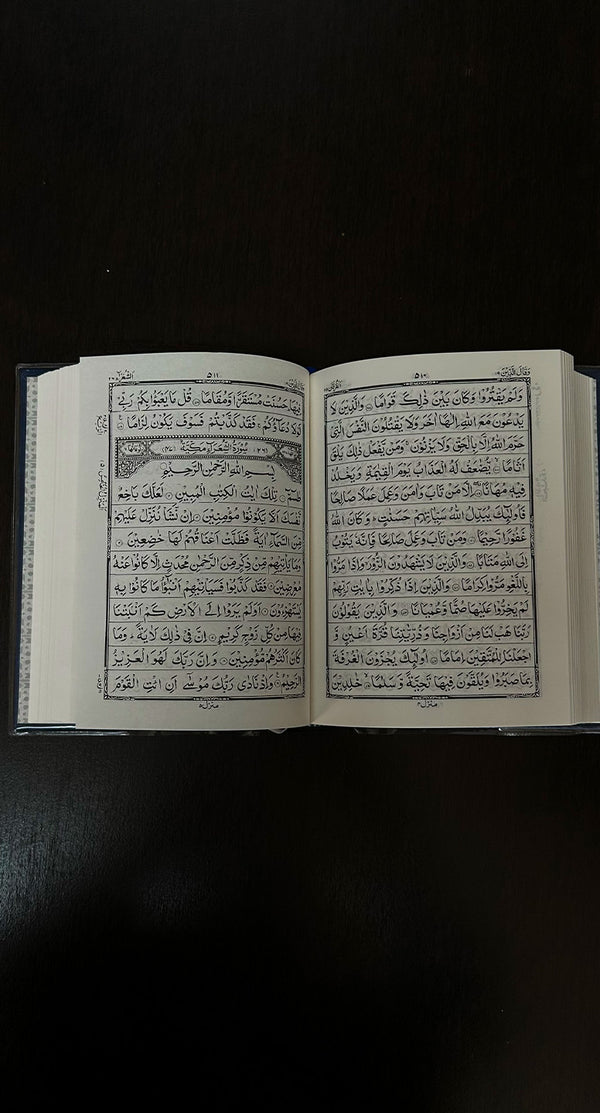 وَقَالَ الَّذِيْنَ ١٩
٥١٠
الْفُرْقَان ٢٥
وَلَمْ يَقْتُرُوْا وَكَانَ بَيْنَ ذٰلِكَ قَوَامًا وَالَّذِيْنَ لَا
يَدْعُوْنَ مَعَ اللّٰهِ اِلٰهًا اٰخَرَ وَلَا يَقْتُلُوْنَ النَّفْسَ الَّتِيْ
حَرَّمَ اللّٰهُ اِلَّا بِالْحَقِّ وَلَا يَزْنُوْنَ وَمَنْ يَّفْعَلْ ذٰلِكَ يَلْقَ
اَثَامًا يُّضٰعَفْ لَهُ الْعَذَابُ يَوْمَ الْقِيٰمَةِ وَيَخْلُدْ
فِيْهٖ مُهَانًا اِلَّا مَنْ تَابَ وَاٰمَنَ وَعَمِلَ عَمَلًا صَالِحًا
فَاُولٰٓئِكَ يُبَدِّلُ اللّٰهُ سَيِّاٰتِهِمْ حَسَنٰتٍ وَكَانَ اللّٰهُ
غَفُوْرًا رَّحِيْمًا وَمَنْ تَابَ وَعَمِلَ صَالِحًا فَاِنَّهٗ يَتُوْبُ
اِلَى اللّٰهِ مَتَابًا وَالَّذِيْنَ لَا يَشْهَدُوْنَ الزُّوْرَ وَاِذَا مَرُّوْا
بِاللَّغْوِ مَرُّوْا كِرَامًا وَالَّذِيْنَ اِذَا ذُكِّرُوْا بِاٰيٰتِ رَبِّهِمْ
لَمْ يَخِرُّوْا عَلَيْهَا صُمًّا وَّعُمْيَانًا وَالَّذِيْنَ يَقُوْلُوْنَ
رَبَّنَا هَبْ لَنَا مِنْ اَزْوَاجِنَا وَذُرِّيّٰتِنَا قُرَّةَ اَعْيُنٍ وَّ
اجْعَلْنَا لِلْمُتَّقِيْنَ اِمَامًا اُولٰٓئِكَ يُجْزَوْنَ الْغُرْفَةَ
بِمَا صَبَرُوْا وَيُلَقَّوْنَ فِيْهَا تَحِيَّةً وَّسَلٰمًا خٰلِدِيْنَ
منزل ٤
٥١١
الشُّعَرَآء ٢٦
فِيْهَا حَسُنَتْ مُسْتَقَرًّا وَّمُقَامًا قُلْ مَا يَعْبَؤُا بِكُمْ رَبِّيْ
لَوْلَا دُعَآؤُكُمْ فَقَدْ كَذَّبْتُمْ فَسَوْفَ يَكُوْنُ لِزَامًا
(٢٦) سُوْرَةُ الشُّعَرَآءِ مَكِّيَّةٌ (٤٧)
بِسْمِ اللّٰهِ الرَّحْمٰنِ الرَّحِيْمِ
طٰسٓمّٓ تِلْكَ اٰيٰتُ الْكِتٰبِ الْمُبِيْنِ لَعَلَّكَ بَاخِعٌ
نَّفْسَكَ اَلَّا يَكُوْنُوْا مُؤْمِنِيْنَ اِنْ نَّشَاْ نُنَزِّلْ عَلَيْهِمْ
مِّنَ السَّمَآءِ اٰيَةً فَظَلَّتْ اَعْنَاقُهُمْ لَهَا خٰضِعِيْنَ
وَمَا يَاْتِيْهِمْ مِّنْ ذِكْرٍ مِّنَ الرَّحْمٰنِ مُحْدَثٍ اِلَّا كَانُوْا عَنْهُ
مُعْرِضِيْنَ فَقَدْ كَذَّبُوْا فَسَيَاْتِيْهِمْ اَنْۢبٰٓؤُا مَا كَانُوْا بِهٖ
يَسْتَهْزِءُوْنَ اَوَلَمْ يَرَوْا اِلَى الْاَرْضِ كَمْ اَنْۢبَتْنَا
فِيْهَا مِنْ كُلِّ زَوْجٍ كَرِيْمٍ اِنَّ فِيْ ذٰلِكَ لَاٰيَةً وَمَا
كَانَ اَكْثَرُهُمْ مُّؤْمِنِيْنَ وَاِنَّ رَبَّكَ لَهُوَ الْعَزِيْزُ
الرَّحِيْمُ وَاِذْ نَادٰى رَبُّكَ مُوْسٰٓى اَنِ ائْتِ الْقَوْمَ
منزل ٥